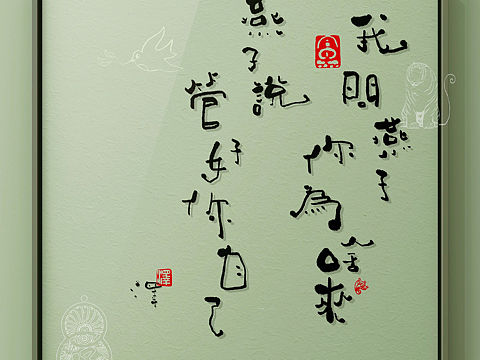 我問燕子
你為啥來
燕子說
管好你自己